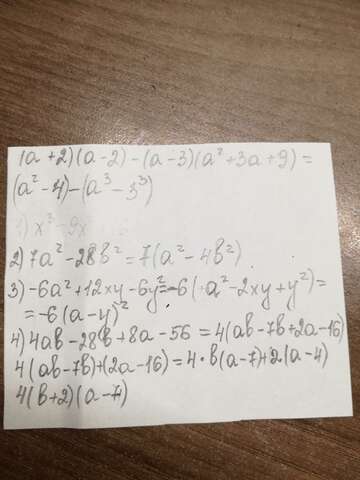 (a+2)(a-2)-(a-3)(a²+3a+9)=
(a²-4)-(a³-3³)
1) x³-9x
2) 7a²-28b²=7(a²-4b²)
3) -6a²+12xy-6y²=-6(a²-2xy+y²)=
=-6(a-y)²
4) 4ab-28b+8a-56=4(ab-7b+2a-16)
4(ab-7b)+(2a-16)=4·b(a-7)+2(a-4)
4(b+2)(a-7)